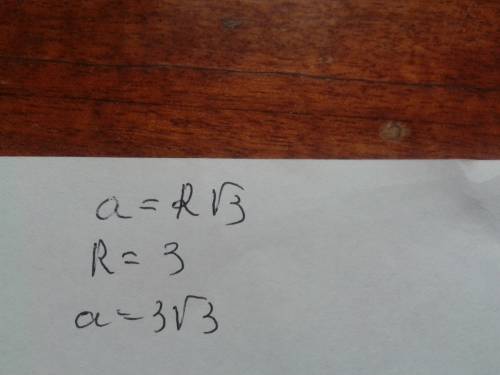 a = R√3
R = 3
a = 3√3